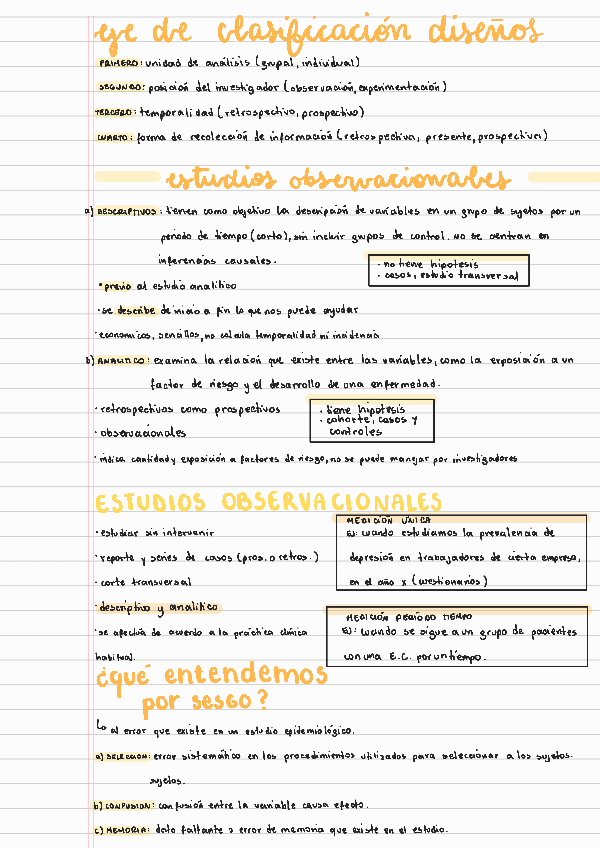 eje de clasificación diseños
PRIMERO: unidad de análisis (grupal, individual)
SEGUNDO: posición del investigador (observación, experimentación)
TERCERO: temporalidad (retrospectivo, prospectivo)
CUARTO: forma de recolección de información (retrospectiva, presente, prospectiva)
estudios observacionales
a) DESCRIPTIVOS: tienen como objetivo la descripción de variables en un grupo de sujetos por un
periodo de tiempo (corto), sin incluir grupos de control. no se centran en
inferencias causales.
· no tiene hipotesis
· casos, estudio transversal
· previo al estudio analitico
· se describe de inicio a fin lo que nos puede ayudar
· economicos, sencillos, no calcula temporalidad ni incidencia
b) ANALITICO: examina la relacion que existe entre las variables, como la exposición a un
factor de riesgo y el desarrollo de una enfermedad.
· retrospectivos como prospectivos
· tiene hipotesis
· cohorte, casos y
controles
· observacionales
· indica cantidad y exposición a factores de riesgo, no se puede manejar por investigadores
ESTUDIOS OBSERVACIONALES
· estudiar sin intervenir
· reporte y series de casos (pros. o retros.)
· corte transversal
· descriptivo y analitico
· se afectua de acuerdo a la práctica clínica
habitual.
MEDICIÓN ÚNICA
EJ: cuando estudiamos la prevalencia de
depresión en trabajadores de cierta empresa,
en el año x (cuestionarios)
MEDICIÓN PERÍODO TIEMPO
EJ: cuando se sigue a un grupo de pacientes
con una E.C. por un tiempo.
¿qué entendemos
por sesgo?
al error que existe en un estudio epidemiológico.
a) SELECCION: error sistemático en los procedimientos utilizados para seleccionar a los sujetos.
sujetos.
b) CONFUSION: confusión entre la variable causa efecto.
c) MEMORIA: dato faltante o error de memoria que existe en el estudio.